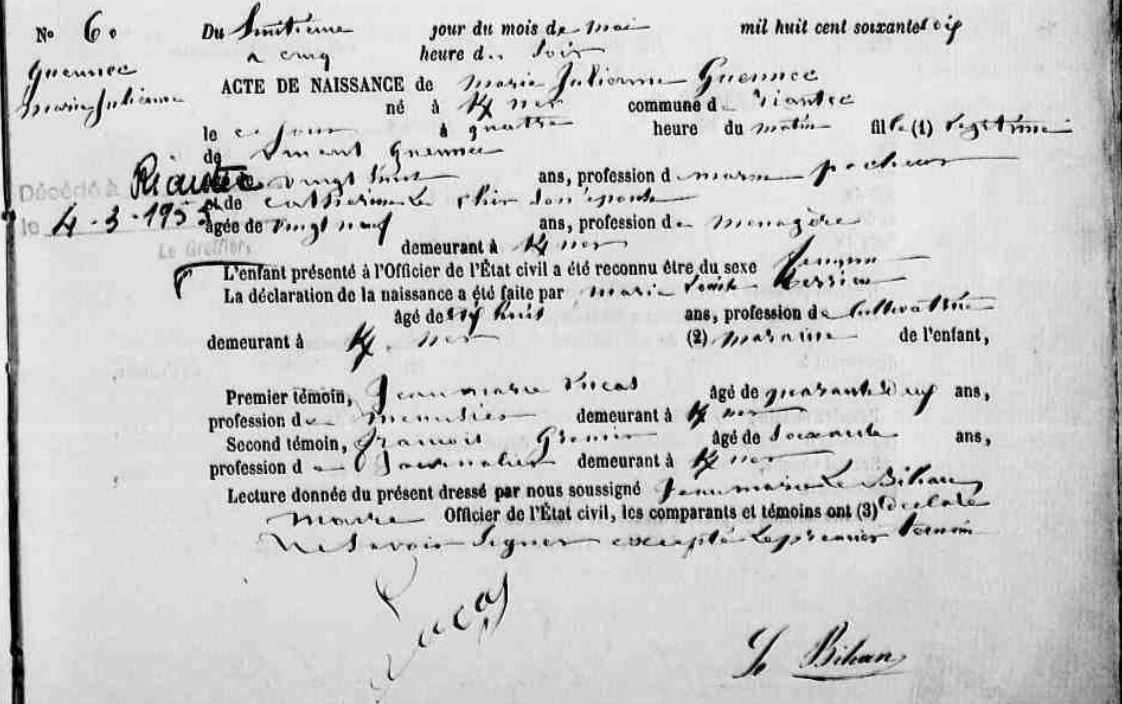 No 60 Du huitième jour du mois de mai mil huit cent soixante dix
Guennec
Marie Julienne
à cinq heure d.. soir
ACTE DE NAISSANCE de Marie Julienne Guennec
né à commune de Riantec
le ce jour à quatre heure du matin fille (1) légitime
de Vincent Guennec
Décédé à Riantec vingt huit ans, profession de marin pecheur
et de Catherine Le son épouse
le 4-3-195 agée de vingt neuf ans, profession de menagère
Le Greffier,
demeurant à
L'enfant présenté à l'Officier de l'État civil a été reconnu être du sexe féminin
La déclaration de la naissance a été faite par Marie
âgé de ans, profession de Cultivatrice
demeurant à (2) de l'enfant,
Premier témoin, Jean Marie Lucas âgé de quarante neuf ans,
profession de menuisier demeurant à
Second témoin, François âgé de soixante ans,
profession de Journalier demeurant à
Lecture donnée du présent dressé par nous soussigné Jean Marie Le Bihan
Maire Officier de l'État civil, les comparants et témoins ont (3) déclaré
Ne Savoir Signer excepté le premier temoin
Lucas
Le Bihan